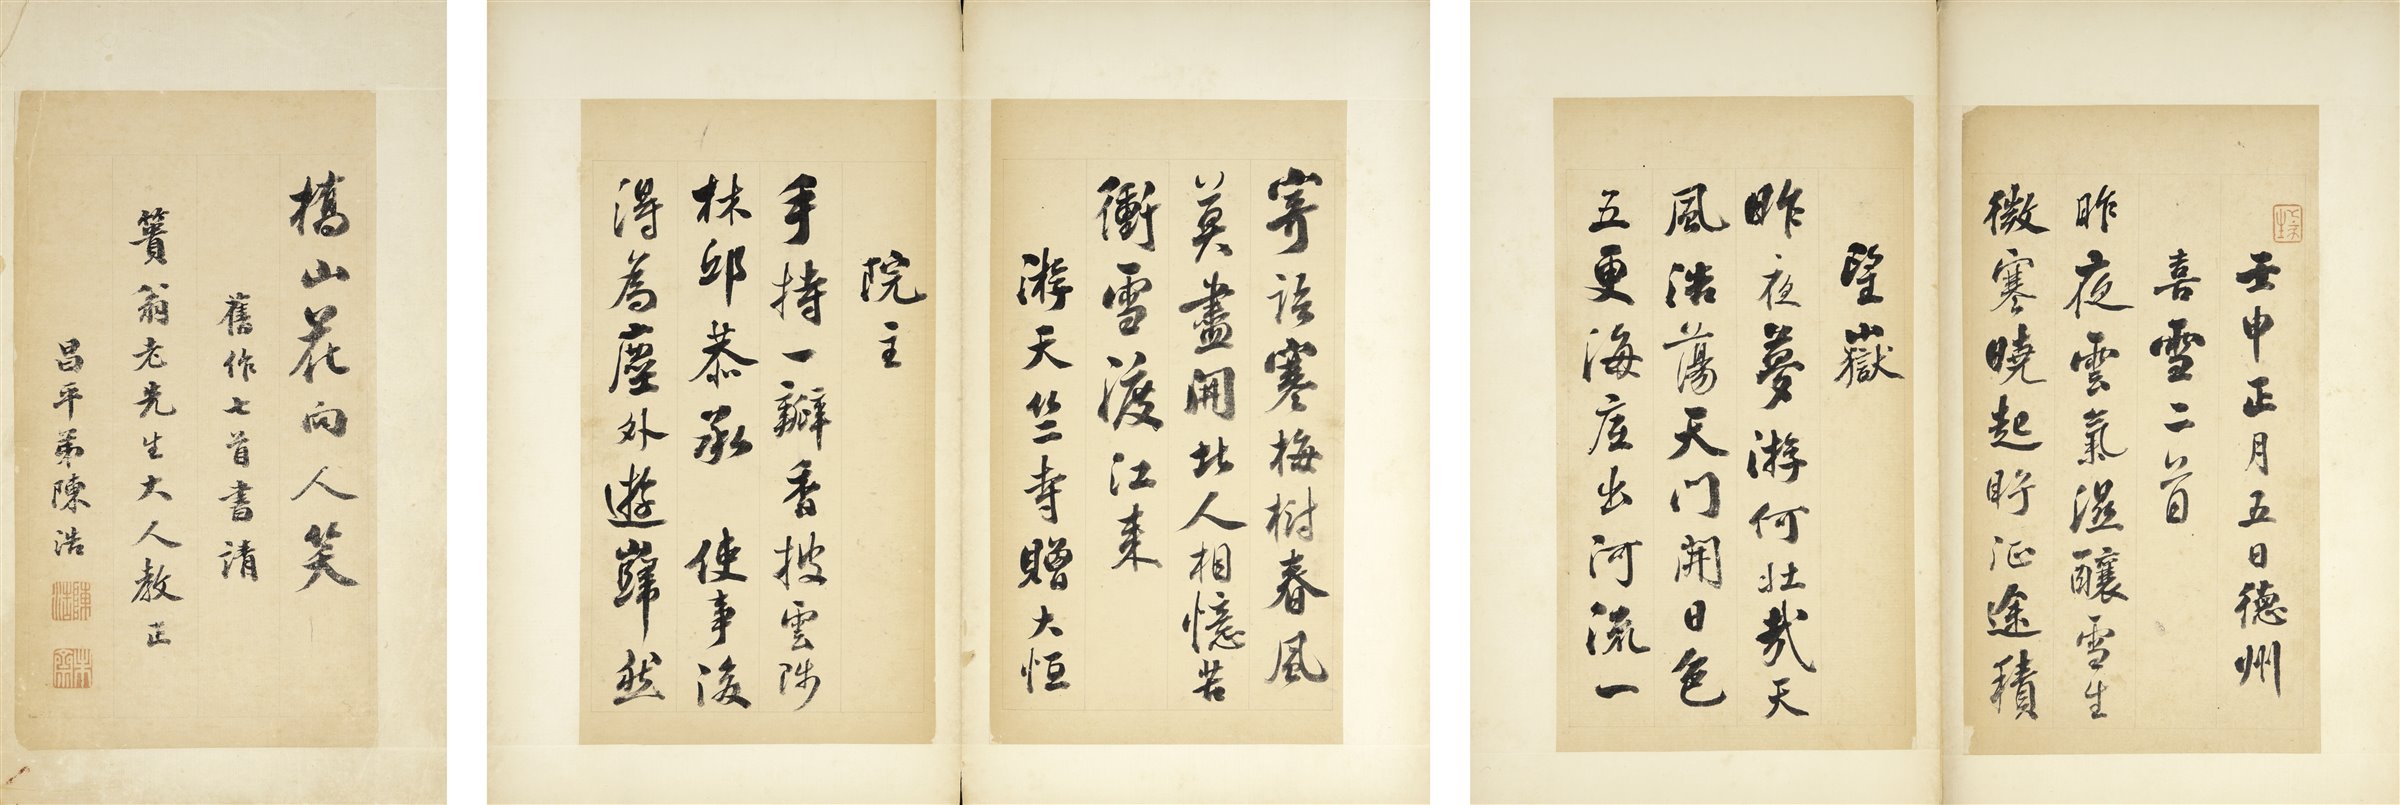 壬申正月五日德州
喜雪二首
昨夜雲氣濕釀雪生
微寒曉起盻征途積
望嶽
昨夜夢游何壯哉天
風浩蕩天門開日色
五更海底出河流一
寄語寒梅樹春風
莫盡開北人相憶苦
衝雪渡江來
游天竺寺贈大恒
院主
手持一瓣香披雲陟
林邱恭承 使事後
得為塵外遊巋然
橋山花向人笑
舊作七首書請
簣翁老先生大人教正
昌平弟陳浩
陳浩